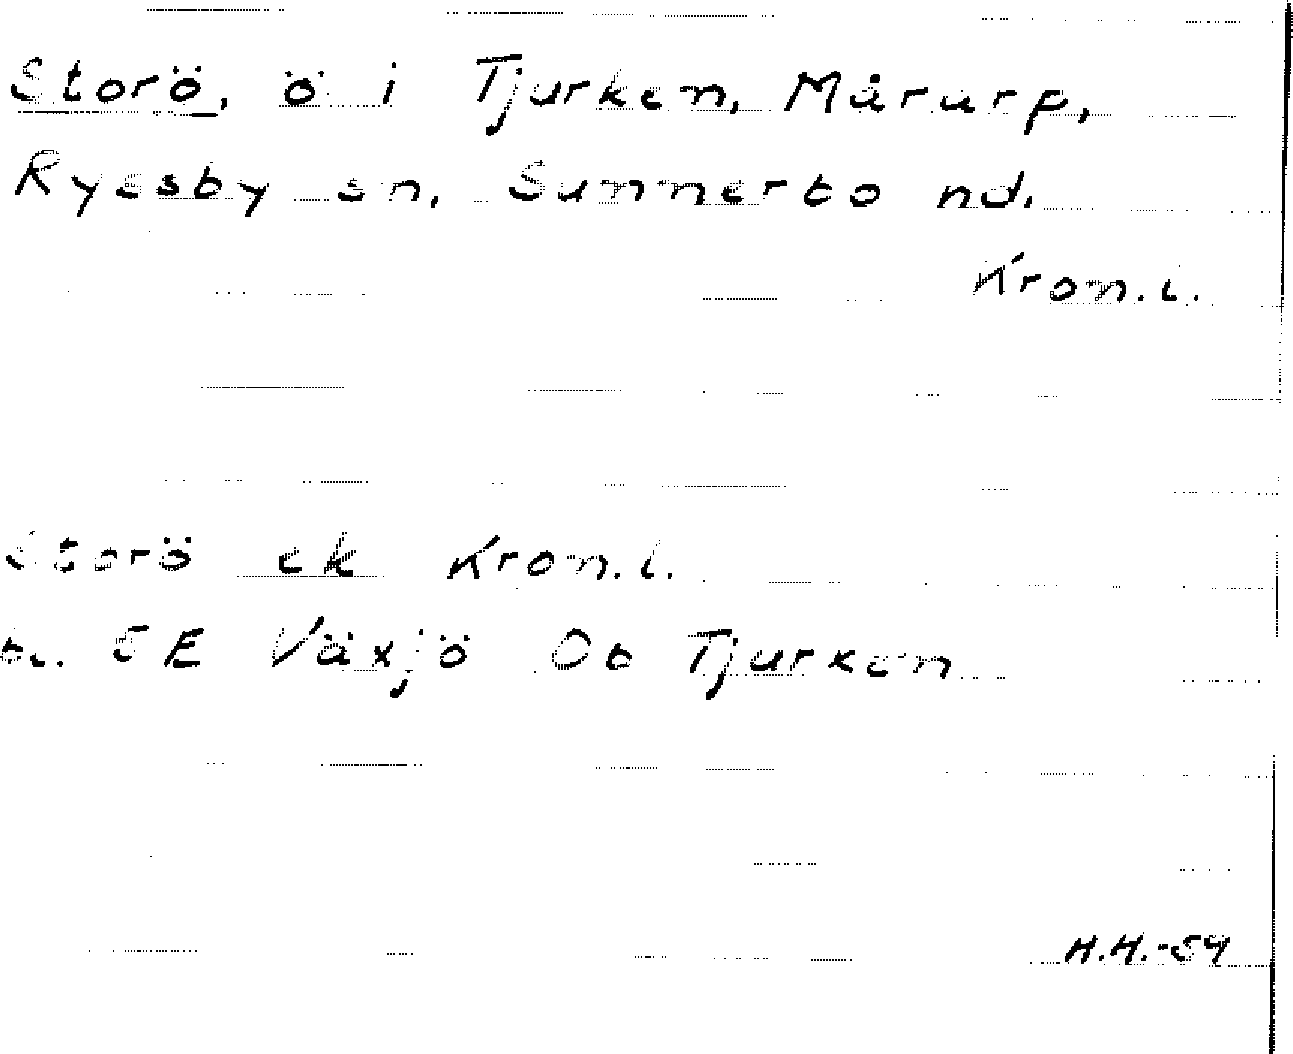 Storö, ö i Tjurken, Mårarp,
Ryssby sn, Sunnerbo hd.
Kron.l.
Storö ek Kron.l.
bl. 5E Växjö Ob Tjurken
H.H.-54